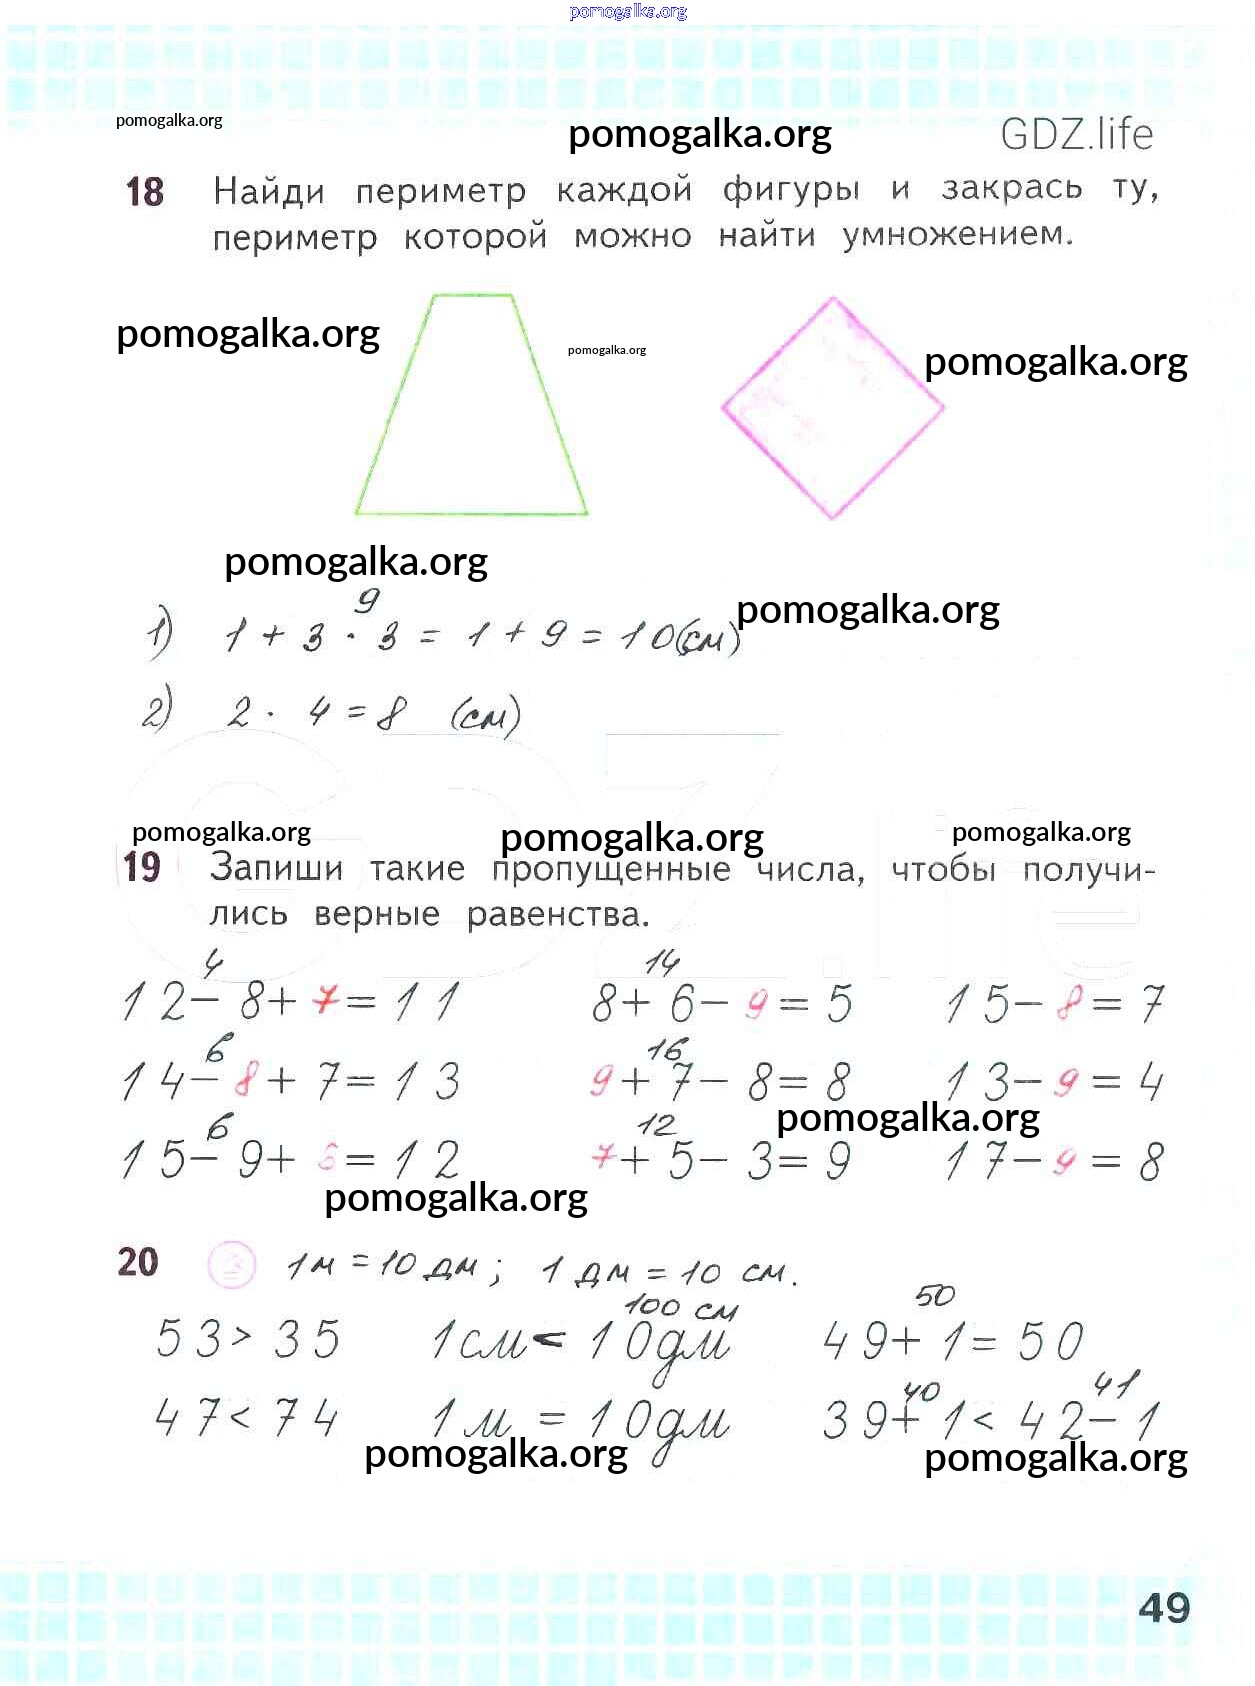 pomogalka.org
pomogalka.org pomogalka.org GDZ.life
18 Найди периметр каждой фигуры и закрась ту,
периметр которой можно найти умножением.
pomogalka.org pomogalka.org pomogalka.org
pomogalka.org
pomogalka.org
9
1) 1 + 3 · 3 = 1 + 9 = 10(см)
2) 2 · 4 = 8 (см)
GDZ.life
pomogalka.org pomogalka.org pomogalka.org
19 Запиши такие пропущенные числа, чтобы получи-
лись верные равенства.
4 14
12 − 8 + 7 = 11 8 + 6 − 9 = 5 15 − 8 = 7
6 16
14 − 8 + 7 = 13 9 + 7 − 8 = 8 13 − 9 = 4
pomogalka.org
6 12
15 − 9 + 6 = 12 7 + 5 − 3 = 9 17 − 9 = 8
pomogalka.org
20 1 м = 10 дм; 1 дм = 10 см.
100 см 50
53 > 35 1 см < 10 дм 49 + 1 = 50
40 41
47 < 74 1 м = 10 дм 39 + 1 < 42 − 1
pomogalka.org pomogalka.org
49